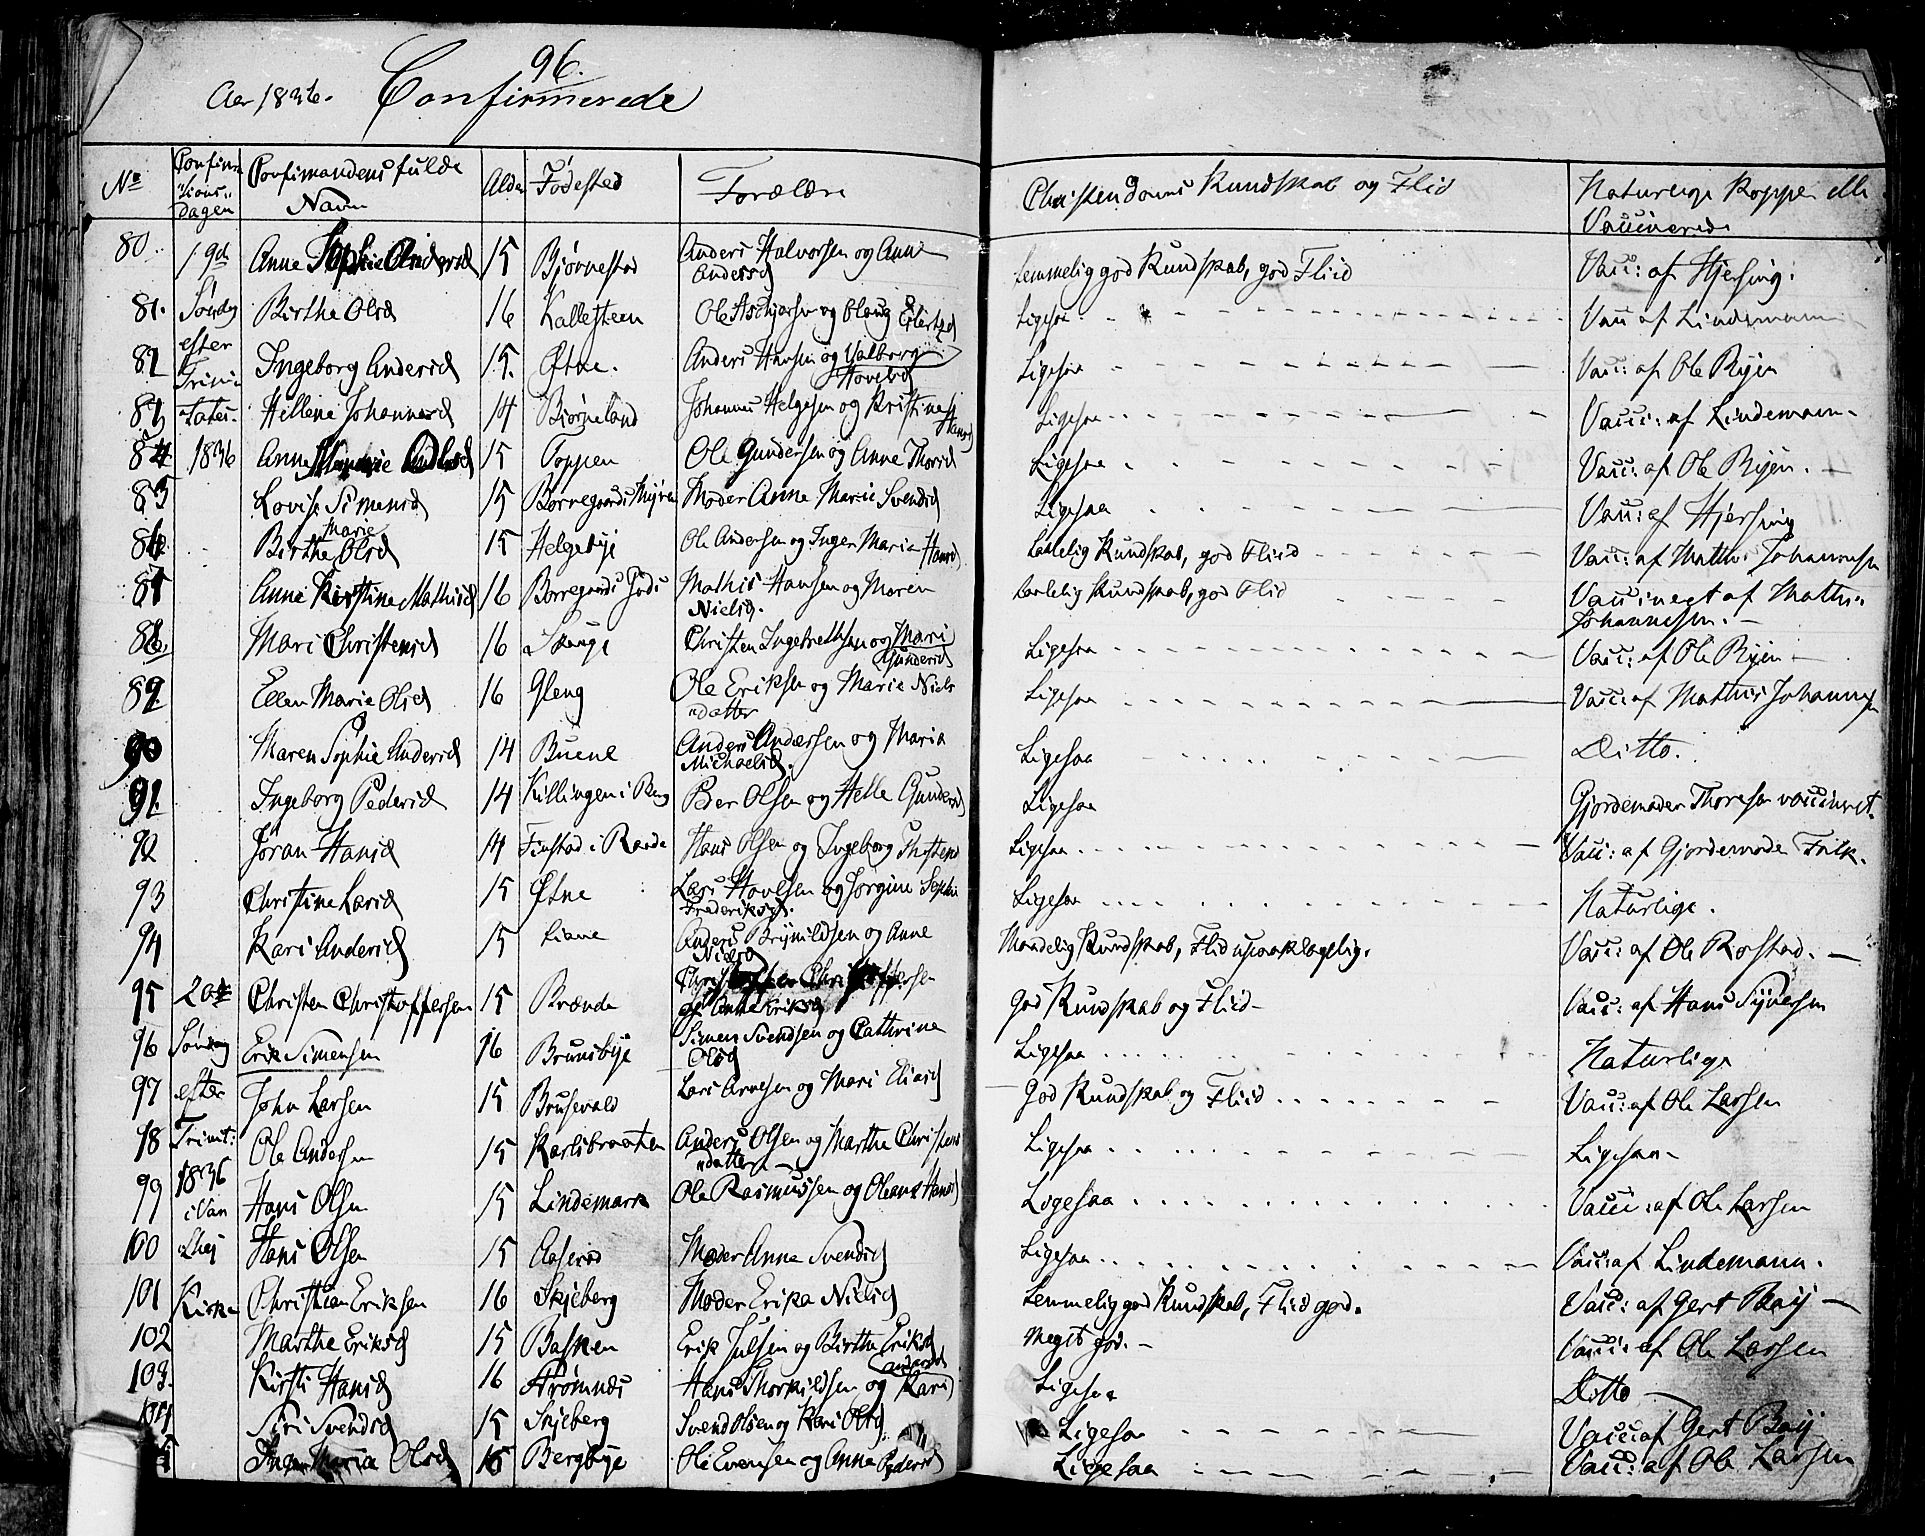 96.
Aar 1836. Confirmerede
No Confirma"tions"dagen Confirmandens fulde Navn Alder Fødested Forældre Christendoms Kundskab og Fliid Naturlige Kopper elle Vaccinerede
80. 19d Anne Sophie Andersd 15 Bjørnestad Anders Halvorsen og Anne Andersd temmelig god Kundskab, god Fliid Vacc: af Hjersing.
81. Søndag Birthe Olsd 16 Kallesteen Ole Aschjersen og Olaug Eilertsd Ligesaa Vacc af Lindemann
82 efter Ingeborg Andersd 15. Østne. Anders Hansen og Valborg Hovelsd Ligesaa Vacc: af Ole Ryen
83 Trini"tates. Hellene Johannesd 14 Bjørneland Johannes Helgesen og Kristine Hansd Ligesaa Vacc: af Lindemann.
84 1836 Anne Olsd 15 Toppen Ole Gundersen og Anne Thorsd Ligesaa Vacc: af Ole Ryen.
85 Lovise Simensd 15 Borregaards Myren Moder Anne Marie Svendsd Ligesaa Vacc: af Hjersing
86 Birthe Marie Olsd 15 Helgebye Ole Andersen og Inger Maria Hansd taalelig Kundskab, god Fliid Vacc: af Mathis Johannesen
87 Anne Kirstine Mathisd 16 Borregaards Gods Mathis Hansen og Maren Nielsd. taalelig Kundskab, god Fliid Vaccineret af Mathis Johannessen.
88. Mari Christensd 16 Skauge Christen Ingebrethsen og Mari Gundersd Ligesaa Vacc: af Ole Ryen
89. Ellen Marie Olsd 16 Gleng Ole Eriksen og Marie Niels"datter Ligesaa Vacc: af Mathis Johannesen
90 Maren Sophie Andersd 14 Buene Anders Andersen og Maria Michaelsd. Ligesaa Ditto.
91. Ingeborg Pedersd 14 Killingen i Peder Olsen og Helle Gundersd Ligesaa Gjordemoder Thoresen vaccineret.
92 Jøran Hansd 14 Finstad i Raade Hans Olsen og Ingeborg Ligesaa Vacc: af Gjordemode Falk.
93 Christine Larsd 15 Østne Lars Hovelsen og Jørgine Sophie Frederiksd. Ligesaa Naturlige.
94 Kari Andersd 15 Liane Anders Brynildsen og Anne Nielsd Maadelig Kundskab, Fliid upaaklagelig. Vacc: af Ole Rostad.
95 20de Christen Christoffersen 15 Brønde Christoffer Christoffersen og Anne Eriksd God Kundskab og Fliid Vacc: af Hans Syversen
96 Søndag Erik Simensen 16 Brunsbye Simen Svendsen og Cathrina Olsd Ligesaa Naturlige
97 efter John Larsen 15 Brusevald Lars Arnesen og Mari Eliasd God Kundskab og Fliid Vacc: af Ole Larsen
98 Trinit: Ole Andersen 15 Karlsbraaten Anders Olsen og Marthe Christens"datter Ligesaa Ligesaa
99 1836 i Var Hans Olsen 15 Lindemark Ole Rasmussen og Oleane Hansd Ligesaa Vacc: af Ole Larsen
100 Hans Olsen 15 Aaserød Moder Anne Svendsd Ligesaa Vacc: af Lindemann.
101 Kirke Christian Eriksen 16 Skjeberg Moder Erika Nielsd Temmelig god Kundskab, Fliid god. Vacc: af Gert Bøy
102 Marthe Eriksd 15 Basken Erik Julsen og Birthe Eriksd Meget god. Vacc: af Ole Larsen
103. Kirsti Hansd 16 Strømnes Hans Thorkildsen og Kari Andersd Ligesaa Ditto
104 Siri Svendsd 15 Skjeberg Svend Olsen og Kari Olsd Ligesaa Vacc: af Gert Bøy
Inger Maria Olsd 15 Bergbye Ole Evensen og Anne Pedersd Ligesaa Vacc: af Ole Larsen